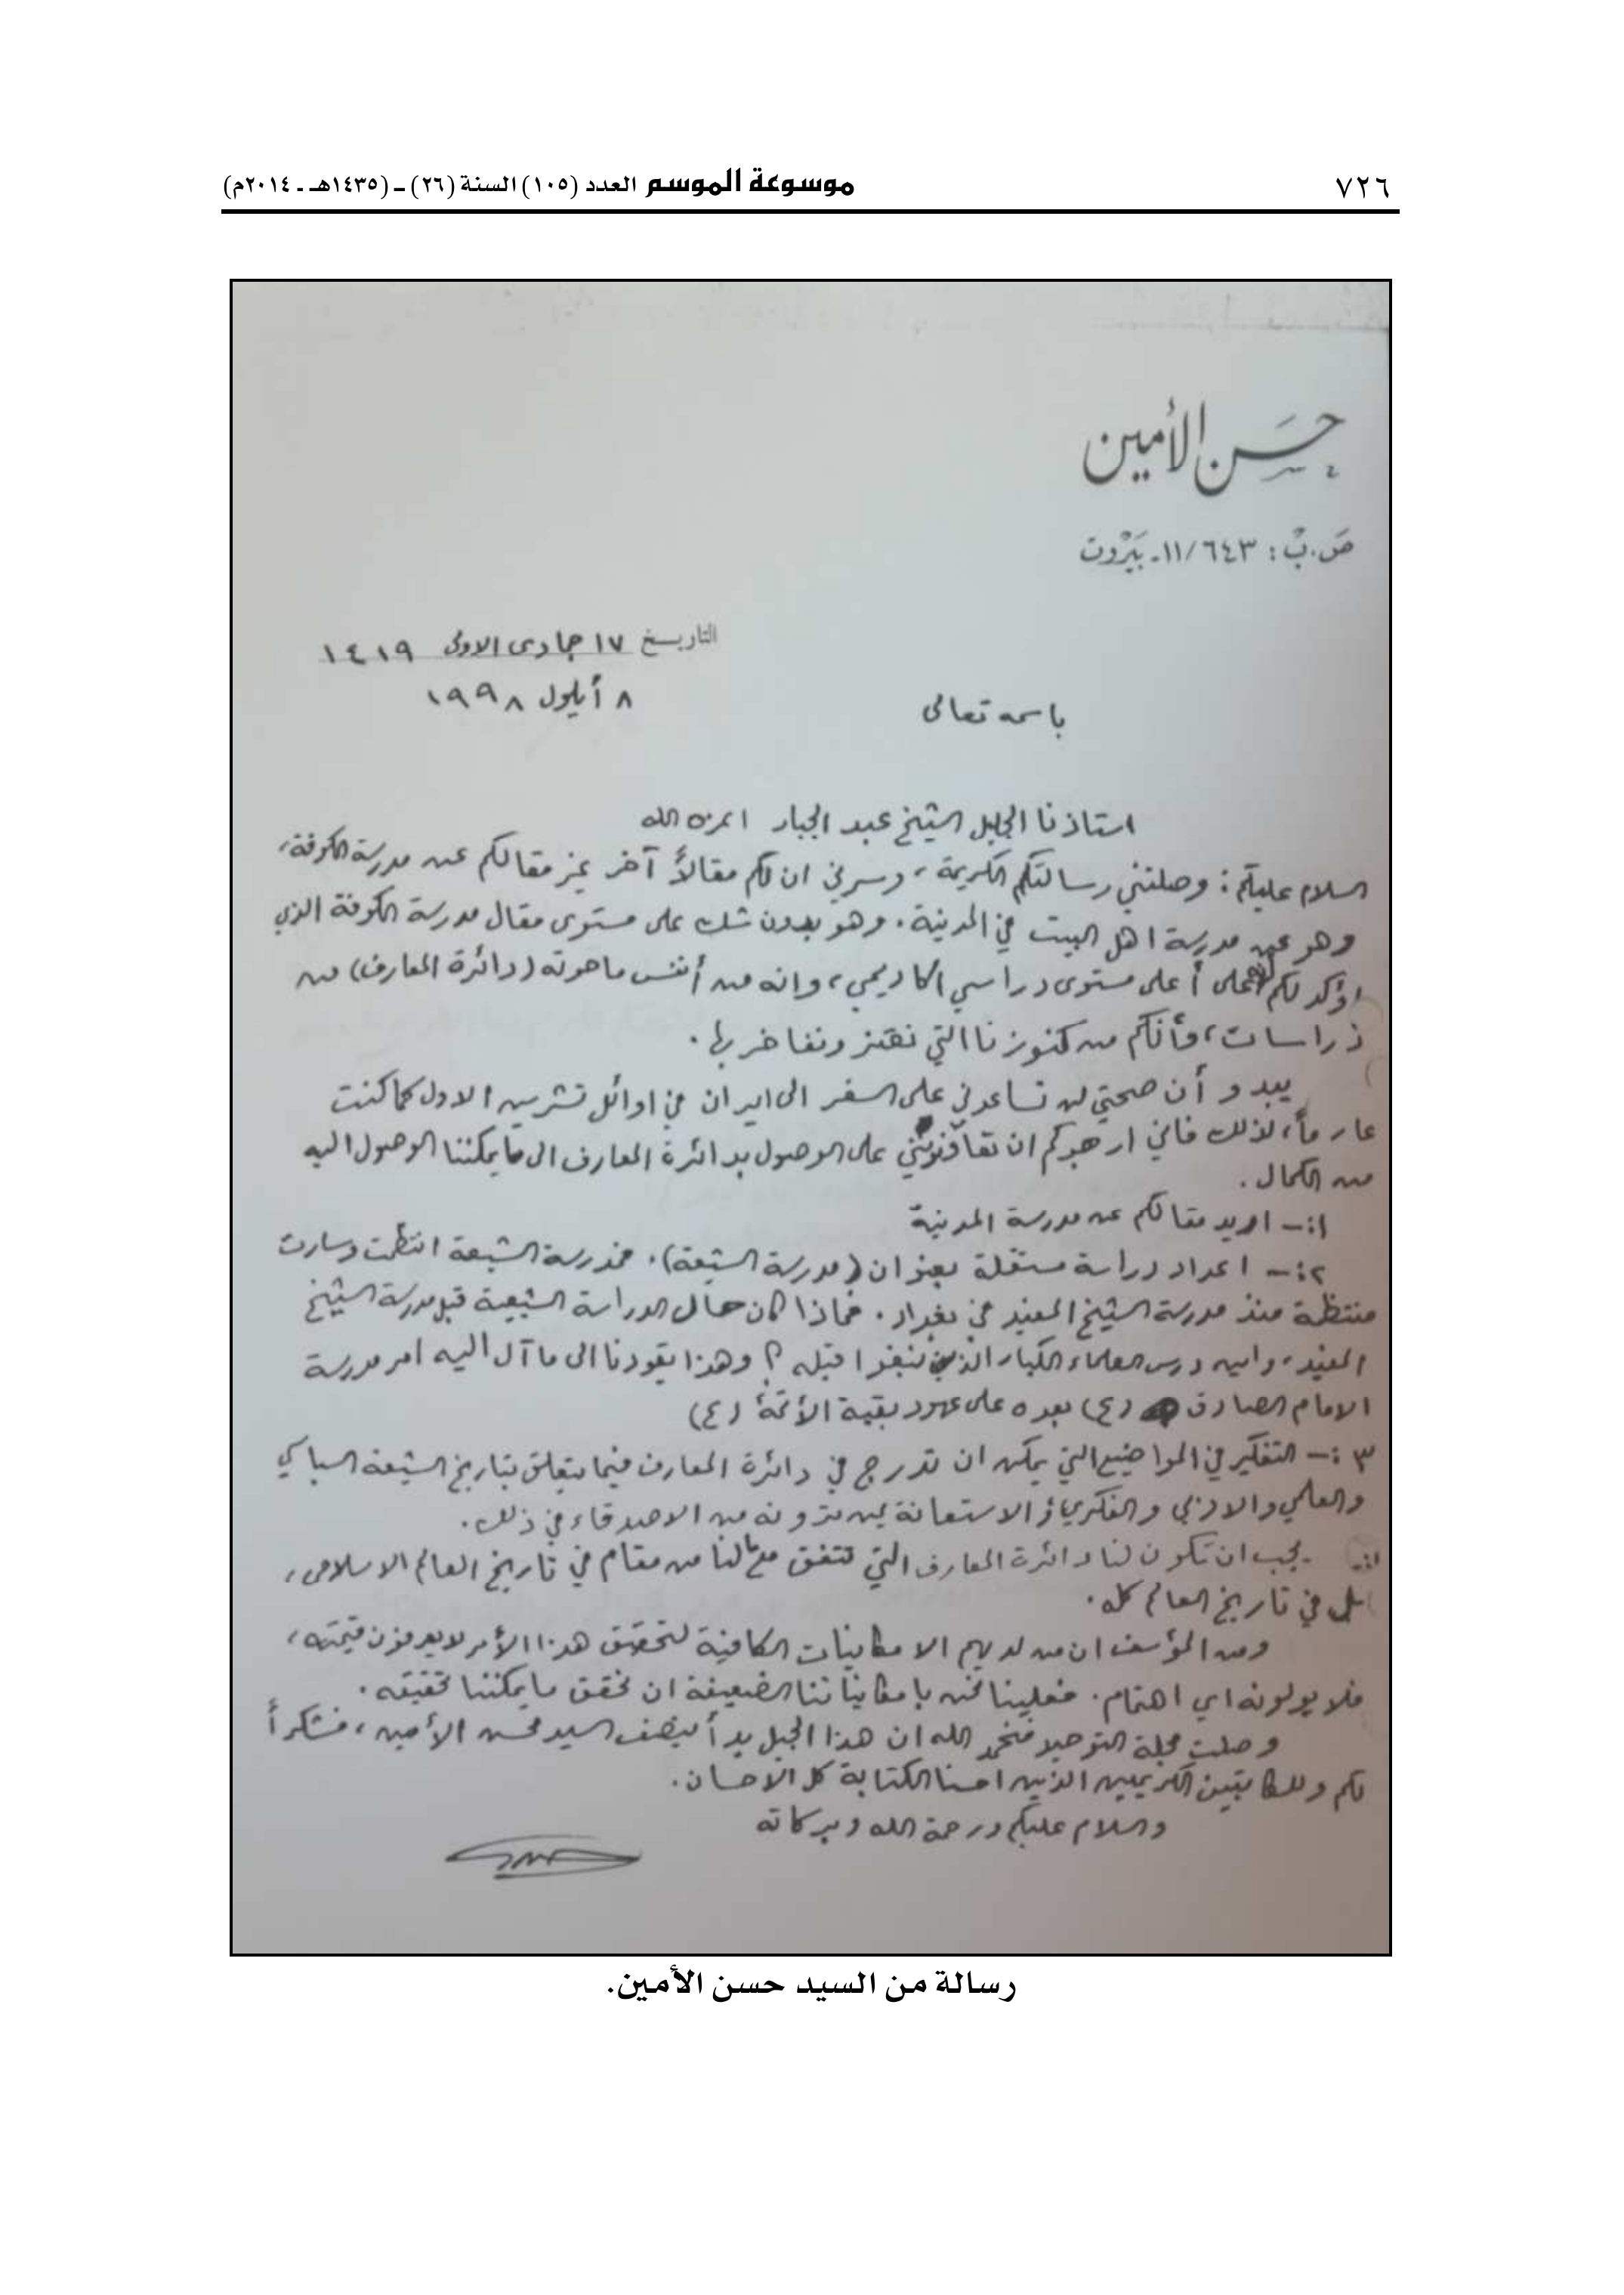 ٧٢٦
موسوعة الموسم العدد (١٠٥) السنة (٢٦) ـ (١٤٣٥هـ ـ ٢٠١٤م)
حسن الأمين
ص.ب: ١١/٦٤٣ - بيروت
التاريخ ١٧ جمادى الاولى ١٤١٩
٨ أيلول ١٩٩٨
باسمه تعالى
استاذنا الجليل الشيخ عبد الجبار اعزه الله
السلام عليكم: وصلتني رسالتكم الكريمة، وسرني ان لكم مقالاً آخر غير مقالكم عن مدرسة الكوفة،
وهو عن مدرسة اهل البيت في المدينة. وهو بدون شك على مستوى مقال مدرسة الكوفة الذي
اؤكد لكم انه على أعلى مستوى دراسي اكاديمي، وانه من أنفس ما حوته (دائرة المعارف) من
دراسات، وأنكم من كنوزنا التي نعتز ونفاخر بها.
يبدو أن صحتي لن تساعدني على السفر الى ايران في اوائل تشرين الاول كما كنت
عازماً، لذلك فاني ارجوكم ان تعاونوني على الوصول بدائرة المعارف الى ما يمكننا الوصول اليه
من الكمال.
١:- اريد مقالكم عن مدرسة المدينة
٢:- اعداد دراسة مستقلة بعنوان (مدرسة الشيعة). فمدرسة الشيعة انتظمت وسارت
منتظمة منذ مدرسة الشيخ المفيد في بغداد. فماذا كان حال الدراسة الشيعية قبل مدرسة الشيخ
المفيد، واين درس العلماء الكبار الذين نبغوا قبله؟ وهذا يقودنا الى ما آل اليه امر مدرسة
الامام الصادق (ع) بعده على عهود بقية الأئمة (ع)
٣:- التفكير في المواضيع التي يمكن ان تدرج في دائرة المعارف فيما يتعلق بتاريخ الشيعة السياسي
والعلمي والادبي والفكري والاستعانة بمن ترونه من الاصدقاء في ذلك.
يجب ان تكون لنا دائرة المعارف التي تتفق مع ما لنا من مقام في تاريخ العالم الاسلامي،
بل في تاريخ العالم كله.
ومن المؤسف ان من لديهم الامكانيات الكافية لتحقيق هذا الأمر لا يعرفون قيمته،
فلا يولونه اي اهتمام. فعلينا نحن بامكانياتنا الضعيفة ان نحقق ما يمكننا تحقيقه.
وصلت مجلة التوحيد فنحمد الله ان هذا الجيل بدأ ينصف السيد محسن الأمين، فشكراً
لكم وللكاتبين الكريمين الذين احسنا الكتابة كل الاحسان.
والسلام عليكم ورحمة الله وبركاته
رسالة من السيد حسن الأمين.